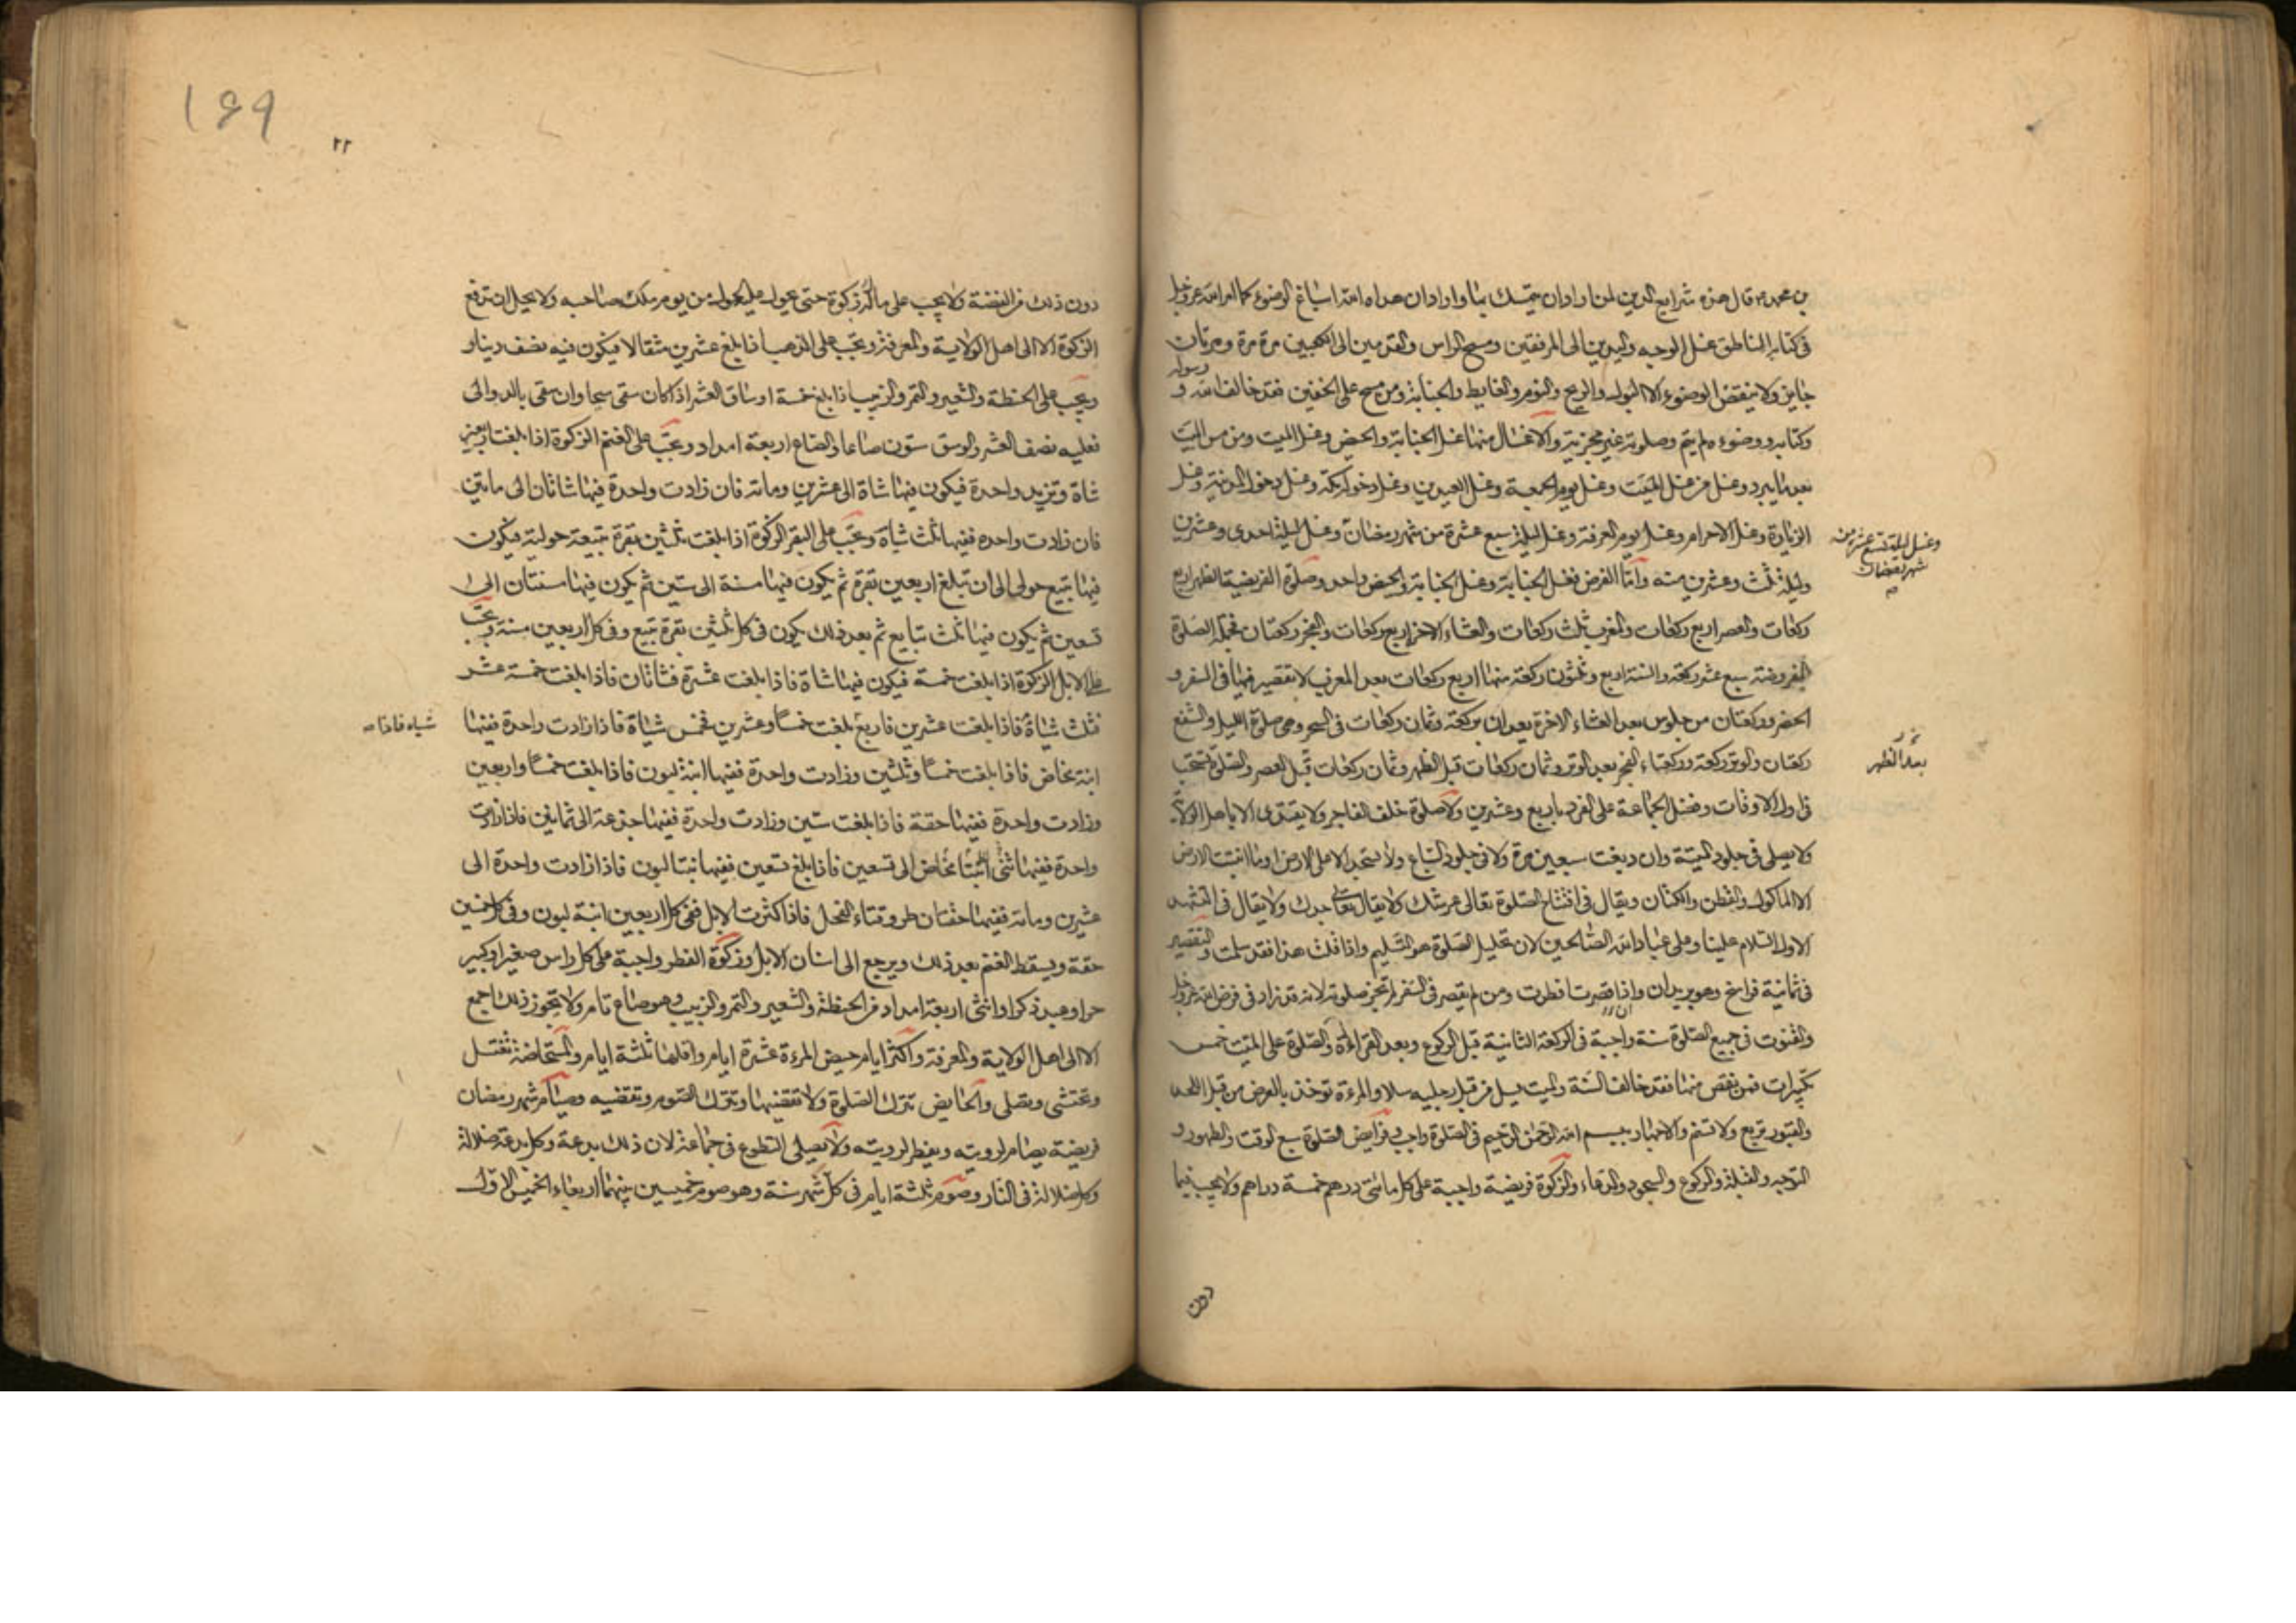 بن محمد ع قال هذه شرايع الدين لمن اراد ان يتمسك بها واراد ان هداه الله اسباغ الوضوء كما امر الله عز وجل
في كتابه الناطق غسل الوجه واليدين الى المرفقين ومسح الراس والقدمين الى الكعبين مرة مرة ومرتان
جايز ولا ينقض الوضوء الا البول والريح والنوم والغايط والجنابة ومن مسح على الخفين فقد خالف الله و
ورسوله
وكتابه ووضوءه لم يتم وصلوته غير مجزية والاغسال منها غسل الجنابة والحيض وغسل الميت ومن مس الميت
بعد ما يبرد وغسل من غسل الميت وغسل يوم الجمعة وغسل العيدين وغسل دخول مكة وغسل دخول المدينة وغسل
الزيارة وغسل الاحرام وغسل يوم العرفة وغسل ليلة سبع عشرة من شهر رمضان وغسل ليلة احدى وعشرين
وغسل ليلة تسع عشر من
شهر رمضان
وليلة ثلث وعشرين منه واما الفرض فغسل الجنابة وغسل الجنابة والحيض واحد وصلوة الفريضة الظهر اربع
ركعات والعصر اربع ركعات والمغرب ثلث ركعات والعشاء الاخرة اربع ركعات والفجر ركعتان فجملة الصلوة
المفروضة سبع عشر ركعة والسنة اربع وثلثون ركعة منها اربع ركعات بعد المغرب لا تقصير فيها في السفر و
الحضر وركعتان من جلوس بعد العشاء الاخرة يعدان بركعة وثمان ركعات في السحر وهي صلوة الليل والشفع
ركعتان والوتر ركعة وركعتاء الفجر بعد الوتر وثمان ركعات قبل الظهر وثمان ركعات قبل العصر والصلوة تستحب
بعد الظهر
في اول الاوقات وفضل الجماعة على الفرد باربع وعشرين ولا صلوة خلف الفاجر ولا يقتدى الا باهل الولاية
ولا يصلى في جلود الميتة وان دبغت سبعين مرة ولا في جلود السباع ولا يسجد الا على الارض او ما انبتت الارض
الا الماكول والقطن والكتان ويقال في افتتاح الصلوة تعالى عرشك ولا يقال تعالى جدك ولا يقال في التشهد
الاول السلام علينا وعلى عباد الله الصالحين لان تحليل الصلوة هو التسليم واذا قلت هذا فقد سلمت والتقصير
في ثمانية فراسخ وهو بريدان واذا قصرت افطرت ومن لم يقصر في السفر لم تجز صلوته لانه قد زاد في فرض الله عز وجل
والقنوت في جميع الصلوة سنة واجبة في الركعة الثانية قبل الركوع وبعد القراءة والصلوة على الميت خمس
تكبيرات فمن نقص منها فقد خالف السنة والميت يسل من قبل رجليه سلا والمرءة توخذ بالعرض من قبل اللحد
والقبور تربع ولا تسنم والاجهار ببسم الله الرحمن الرحيم في الصلوة واجب وفرايض الصلوة سبع الوقت والطهور و
التوجه والقبلة والركوع والسجود والدعاء والزكوة فريضة واجبة على كل مائتي درهم خمسة دراهم ولا يجب فيما
دون
١٤٩
٢٢
دون ذلك من الفضة ولا يجب على مال زكوة حتى يحول عليه الحول من يوم ملكه صاحبه ولا يحل ان تدفع
الزكوة الا الى اهل الولاية والمعرفة وتجب على الذهب اذا بلغ عشرين مثقالا فيكون فيه نصف دينار
وتجب على الحنطة والشعير والتمر والزبيب اذا بلغ خمسة اوساق العشر اذا كان سقى سيحا وان سقى بالدوالى
فعليه نصف العشر والوسق ستون صاعا والصاع اربعة امداد وتجب على الغنم الزكوة اذا بلغت اربعين
شاة وتزيد واحدة فيكون فيها شاة الى عشرين ومائة فان زادت واحدة فيها شاتان الى مايتين
فان زادت واحدة ففيها ثلث شياة وتجب على البقر الزكوة اذا بلغت ثلثين بقرة تبيعة حولية فيكون
فيها تبيع حولى الى ان تبلغ اربعين بقرة ثم يكون فيها مسنة الى ستين ثم يكون فيها مسنتان الى
تسعين ثم يكون فيها ثلث تبايع ثم بعد ذلك يكون في كل ثلثين بقرة تبيع وفي كل اربعين مسنة وتجب
على الابل الزكوة اذا بلغت خمسة فيكون فيها شاة فاذا بلغت عشرة فشاتان فاذا بلغت خمسة عشر
فثلث شياة فاذا بلغت عشرين فاربع بلغت خمسا وعشرين فخمس شياة فاذا زادت واحدة ففيها
شياه فاذا
ابنة مخاض فاذا بلغت خمسا وثلثين وزادت واحدة ففيها ابنة لبون فاذا بلغت خمسا واربعين
وزادت واحدة ففيها حقة فاذا بلغت ستين وزادت واحدة ففيها جذعة الى ثمانين فاذا زادت
واحدة ففيها ثنى الى تسعين فاذا بلغ تسعين ففيها بنتا لبون فاذا زادت واحدة الى
عشرين ومائة ففيها حقتان طروقتاء الفحل فاذا كثرت الابل ففي كل اربعين ابنة لبون وفي كل خمسين
حقة ويسقط الغنم بعد ذلك ويرجع الى اسنان الابل وزكوة الفطر واجبة على كل راس صغير او كبير
حر او عبد ذكر او انثى اربعة امداد من الحنطة والشعير والتمر والزبيب وهو صاع تام ولا يجوز ذلك اجمع
الا الى اهل الولاية والمعرفة واكثر ايام حيض المرءة عشرة ايام واقلها ثلثة ايام والمستحاضة تغتسل
وتحتشى وتصلى والحايض تترك الصلوة ولا تقضيها وتترك الصوم وتقضيه وصيام شهر رمضان
فريضة يصام لرويته ويفطر لرويته ولا يصلى التطوع في جماعة لان ذلك بدعة وكل بدعة ضلالة
وكل ضلالة في النار وصوم ثلثة ايام في كل شهر سنة وهو صوم خميسين بينهما اربعاء الخميس الاول